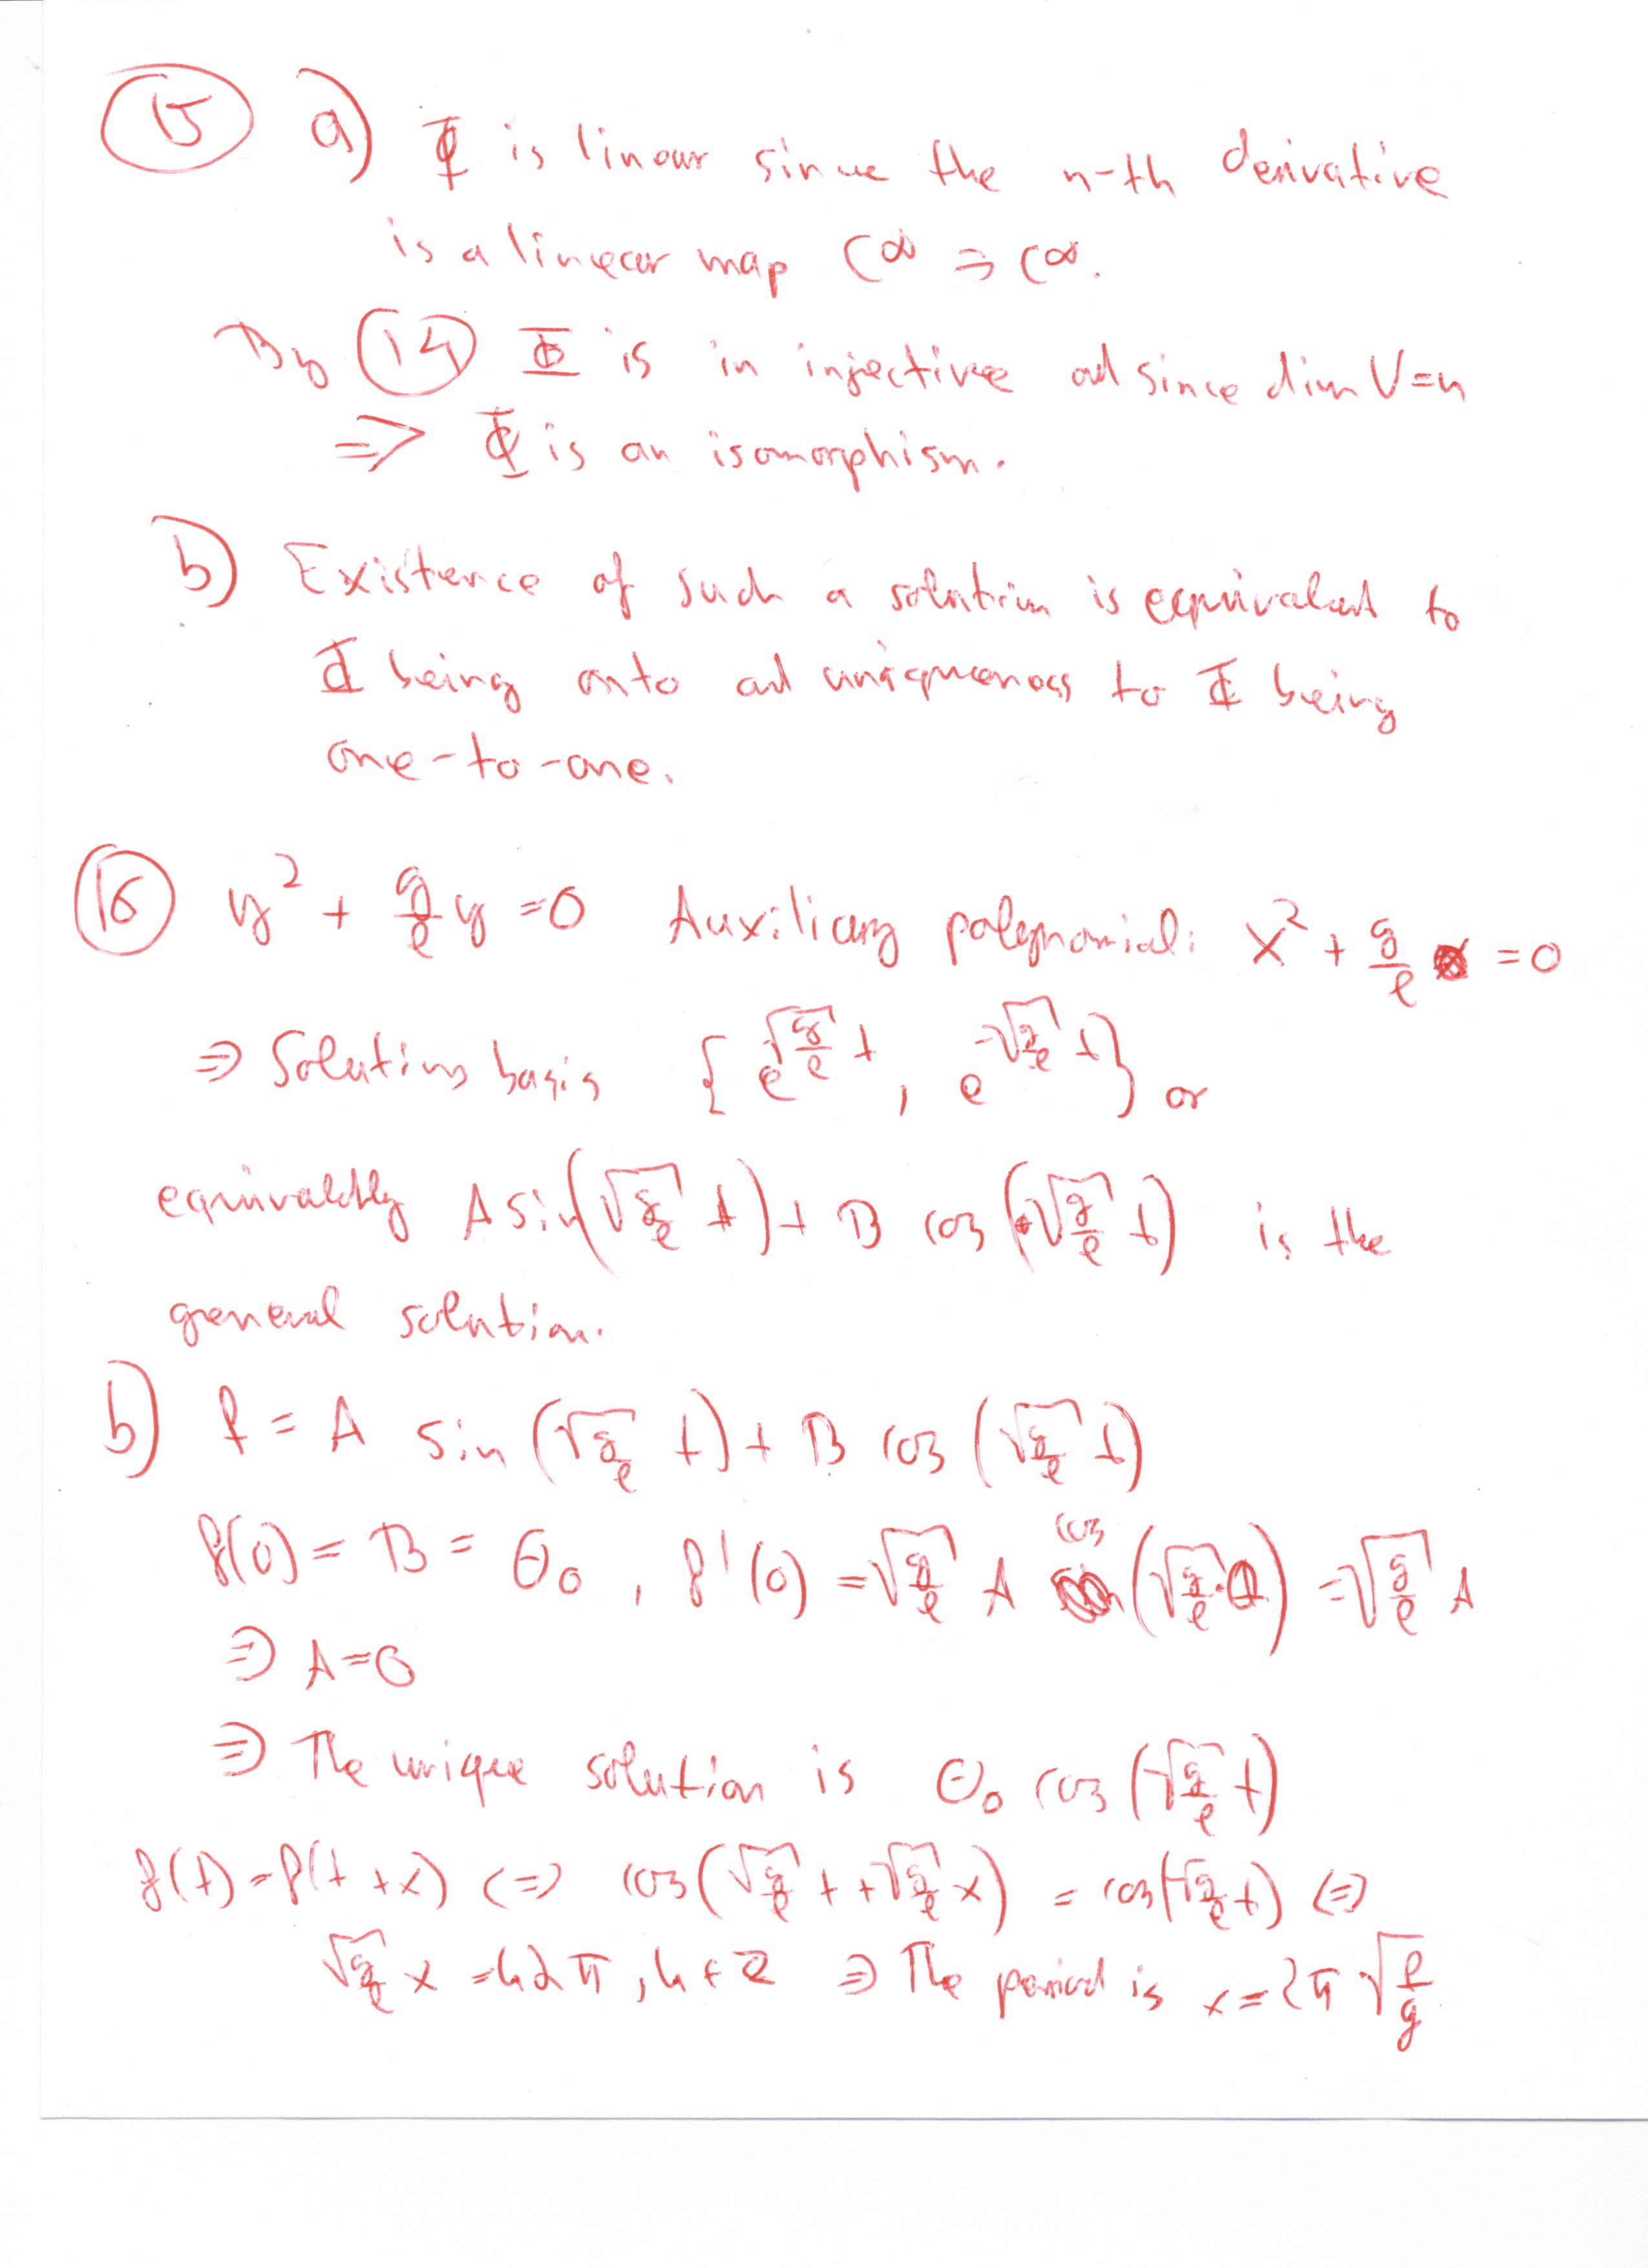 (15) a) Φ is linear since the n-th derivative
is a linear map C∞ → C∞.
By (14) Φ is in injective ad since dim V=n
⇒ Φ is an isomorphism.
b) Existence of such a solution is equivalent to
Φ being onto ad uniqueness to Φ being
one-to-one.
(16) y² + g/ℓ y = 0 Auxiliary polynomial: x² + g/ℓ = 0
⇒ Solutions basis { e^{√(g/ℓ) t}, e^{-√(g/ℓ) t} } or
equivaletly A sin(√(g/ℓ) t) + B cos(√(g/ℓ) t) is the
general solution.
b) f = A sin(√(g/ℓ) t) + B cos(√(g/ℓ) t)
f(0) = B = θ₀, f'(0) = √(g/ℓ) A cos(√(g/ℓ)·0) = √(g/ℓ) A
⇒ A=0
⇒ The unique solution is θ₀ cos(√(g/ℓ) t)
f(t) = f(t+x) ⇔ cos(√(g/ℓ) t + √(g/ℓ) x) = cos(√(g/ℓ) t) ⇔
√(g/ℓ) x = k2π, k ∈ Z ⇒ The period is x = 2π √(ℓ/g)